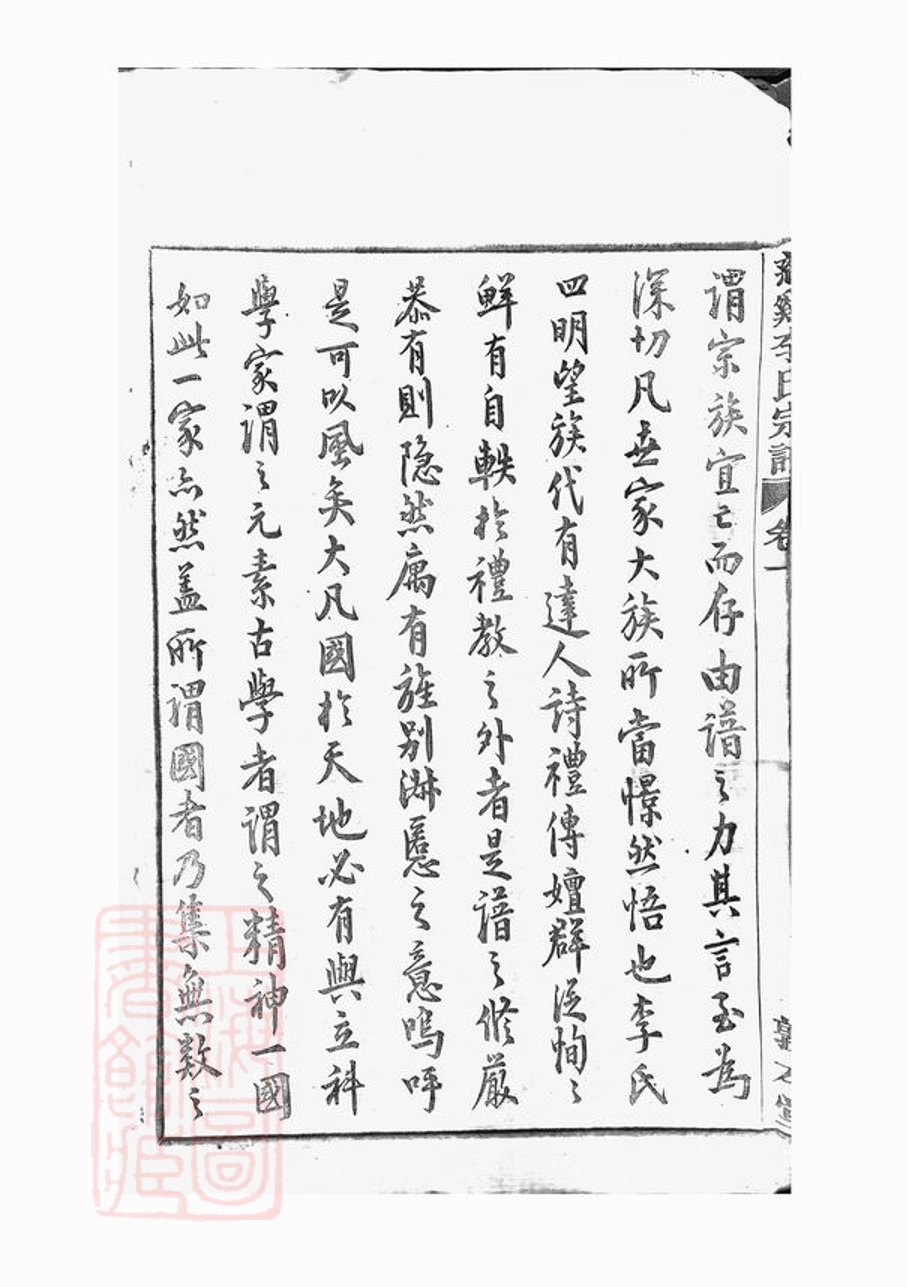 慈谿李氏宗譜 卷一
謂宗族宜亡而存由譜之力其言至為
深切凡世家大族所當憬然悟也李氏
四明望族代有達人詩禮傳嬗群從恂之
鮮有自軼於禮教之外者是譜之修嚴
恭有則隐然寓有旌别淑慝之意嗚呼
是可以風矣大凡國於天地必有與立科
學家謂之元素古學者謂之精神一國
如此一家亦然蓋所謂國者乃集無數之
上海圖書館藏